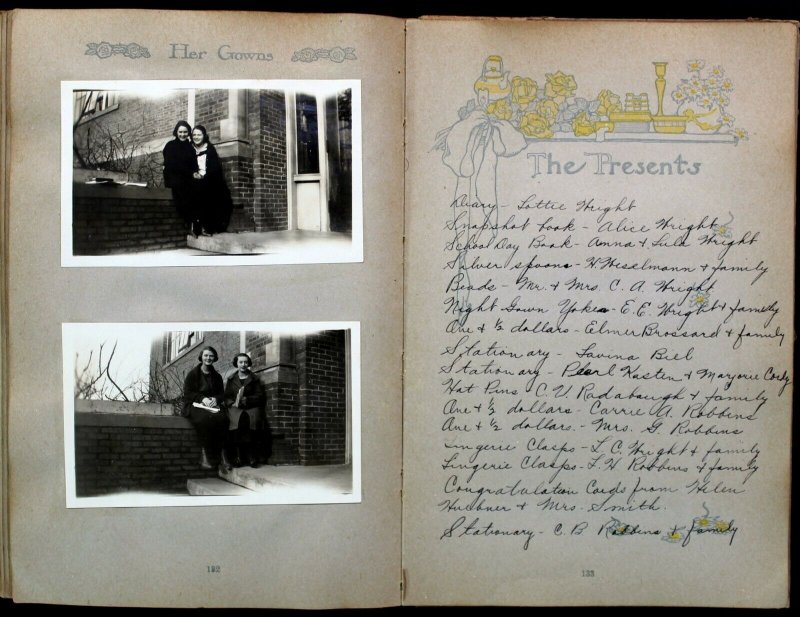 Her Gowns
192
The Presents
Diary - Lottie Wright
Snapshot book - Alice Wright
School Day Book - Anna & Lula Wright
Silver spoons - H. Weselmann & family
Beads - Mr. & Mrs. C. A. Wright
Night Gown Yoke - E. E. Wright & family
One & ½ dollars - Elmer Brossard & family
Stationary - Lavina Biel
Stationary - Pearl Kasten & Marjorie Cordy
Hat Pins - C. V. Radabaugh & family
One & ½ dollars - Carrie A. Robbins
One & ½ dollars - Mrs. G. Robbins
Lingerie Clasps - L. C. Wright & family
Lingerie Clasps - F. W Robbins & family
Congratulation Cards from Helen
Huebner & Mrs. Smith.
Stationary - C. B Robbins & family
133